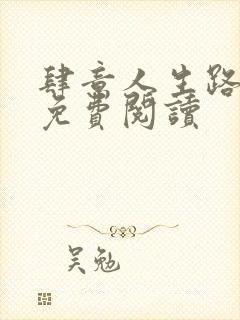 肆意人生路
免費閱讀
吴勉